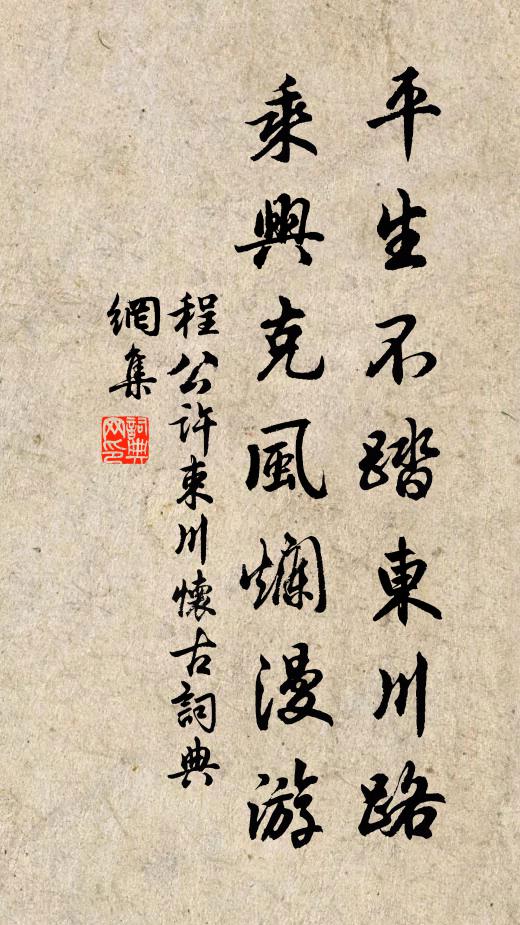 平生不踏東川路
乘興克風爛漫游
程公許東川懷古詞典
網集
詞典網印